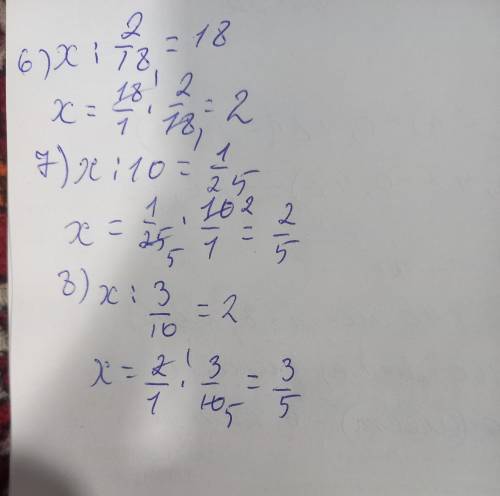 6) x : 2/18 = 18
x = 18/1 · 2/18 = 2
7) x : 10 = 1/25
x = 1/25 5 · 10 2/1 = 2/5
8) x : 3/10 = 2
x = 2 1/1 · 3/10 5 = 3/5